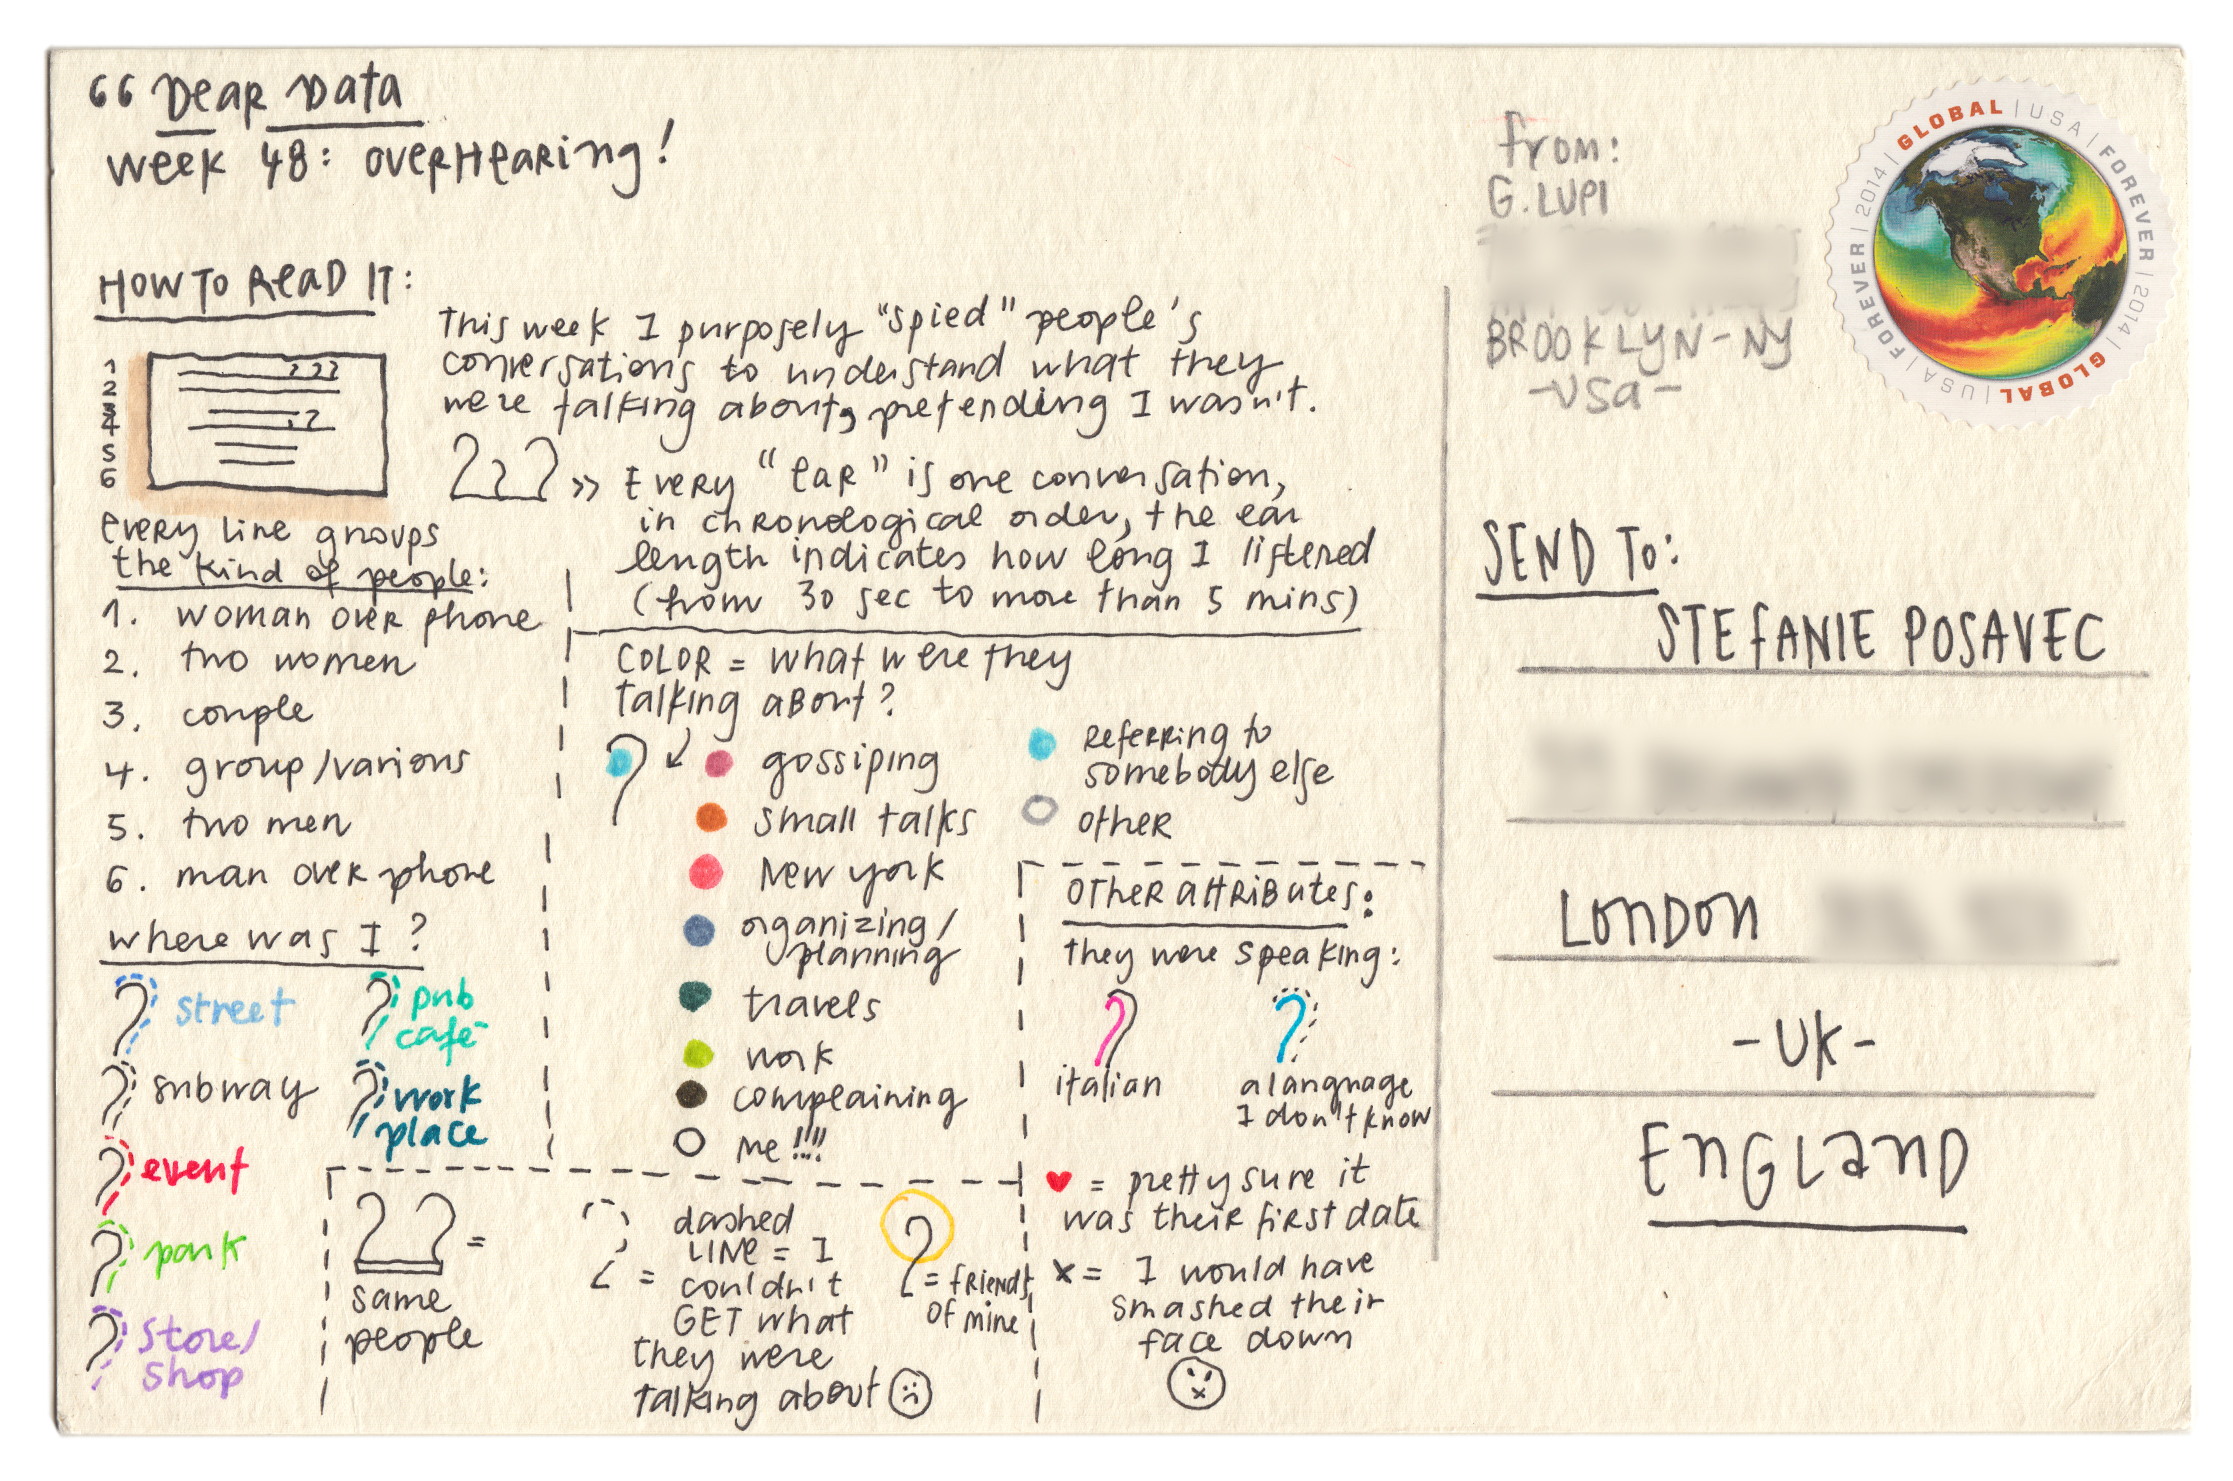 “ Dear Data
week 48: overhearing!
HOW TO READ IT:
1
2
3
4
5
6
every line groups
the kind of people:
1. woman over phone
2. two women
3. couple
4. group/various
5. two men
6. man over phone
where was I?
street
pub
/café
subway
work
place
event
park
store/
shop
This week I purposely "spied" people's
conversations to understand what they
were talking about, pretending I wasn't.
>> Every "ear" is one conversation,
in chronological order, the ear
length indicates how long I listened
(from 30 sec to more than 5 mins)
COLOR = what were they
talking about?
gossiping
small talks
New york
organizing/
planning
travels
work
complaining
me !!!!
Referring to
somebody else
other
=
same
people
dashed
LINE = I
= couldn't
GET what
they were
talking about
= friends
of mine
OTHER attributes:
they were speaking:
italian
a language
I don't know
♥ = pretty sure it
was their first date
x = I would have
smashed their
face down
from:
G. LUPI
BROOKLYN - NY
- USA -
GLOBAL | USA | FOREVER | 2014 | GLOBAL | USA | FOREVER | 2014 |
SEND TO:
STEFANIE POSAVEC
LONDON
- UK -
ENGLAND